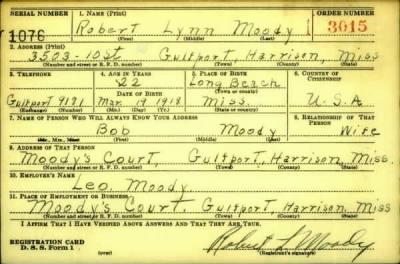 SERIAL NUMBER 1. NAME (Print) ORDER NUMBER
1076 Robert Lynn Moody 3015
(First) (Middle) (Last)
2. ADDRESS (Print)
3503-10st Gulfport, Harrison, Miss
(Number and street or R. F. D. number) (Town) (County) (State)
3. TELEPHONE 4. AGE IN YEARS 5. PLACE OF BIRTH 6. COUNTRY OF CITIZENSHIP
22 Long Beach
DATE OF BIRTH (Town or county)
Gulfport 9171 Mar. 19 1918 Miss. U.S.A
(Exchange) (Number) (Mo.) (Day) (Yr.) (State or country)
7. NAME OF PERSON WHO WILL ALWAYS KNOW YOUR ADDRESS 8. RELATIONSHIP OF THAT PERSON
Bob Moody Wife
(Mr., Mrs., Miss) (First) (Middle) (Last)
9. ADDRESS OF THAT PERSON
Moody's Court, Gulfport, Harrison, Miss.
(Number and street or R. F. D. number) (Town) (County) (State)
10. EMPLOYER'S NAME
Leo. Moody.
11. PLACE OF EMPLOYMENT OR BUSINESS
Moody's Court Gulfport, Harrison, Miss
(Number and street or R. F. D. number) (Town) (County) (State)
I AFFIRM THAT I HAVE VERIFIED ABOVE ANSWERS AND THAT THEY ARE TRUE.
REGISTRATION CARD
D. S. S. Form 1 (over) Robert L Moody
(Registrant's signature)